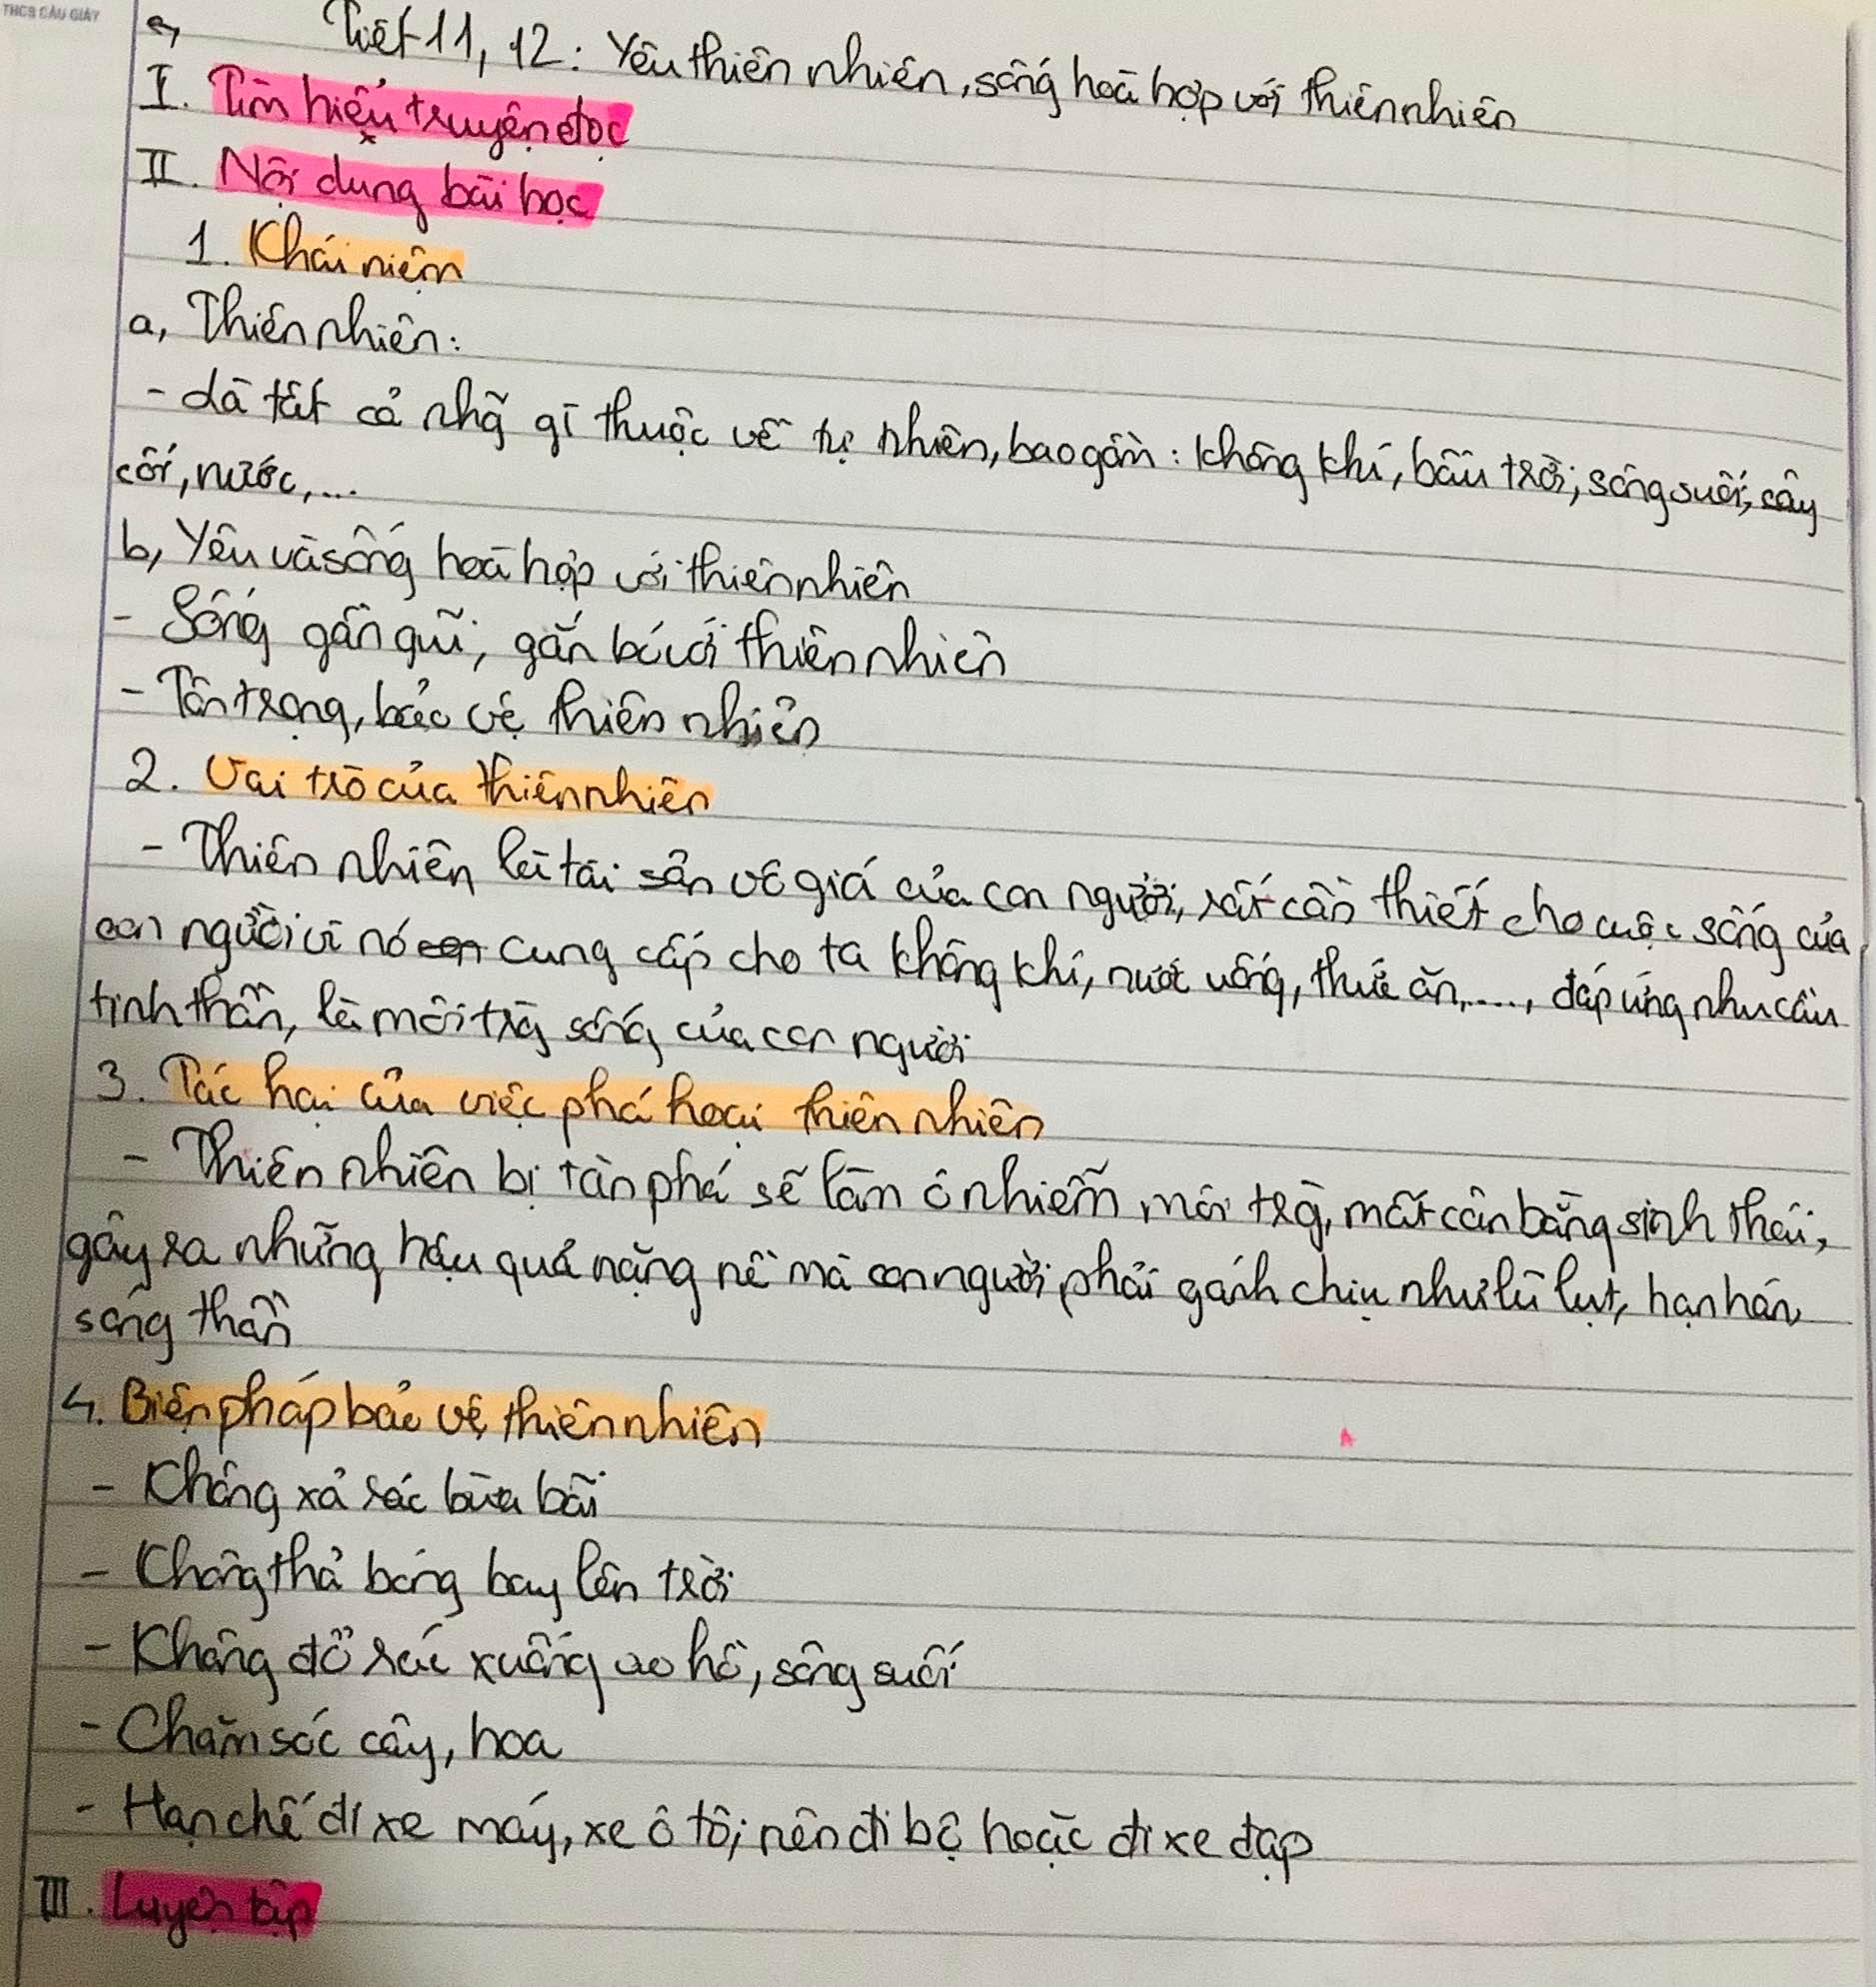 THCS CẦU GIẤY
Tiết 11, 12: Yêu thiên nhiên, sống hoà hợp với thiên nhiên
I. Tìm hiểu truyện đọc
II. Nội dung bài học
1. Khái niệm
a, Thiên nhiên:
- Là tất cả nhg̃ gì thuộc về tự nhiên, bao gồm: không khí, bầu trời, sông suối, cây
cối, nước,...
b, Yêu và sống hoà hợp với thiên nhiên
- Sống gần gũi, gắn bó với thiên nhiên
- Tôn trọng, bảo vệ thiên nhiên
2. Vai trò của thiên nhiên
- Thiên nhiên là tài sản vô giá của con người, rất cần thiết cho cuộc sống của
con người vì nó con cung cấp cho ta không khí, nước uống, thức ăn,...., đáp ứng nhu cầu
tinh thần, là môi trg̀ sống của con người
3. Tác hại của việc phá hoại thiên nhiên
- Thiên nhiên bị tàn phá sẽ làm ô nhiễm môi trg̀, mất cân bằng sinh thái,
gây ra những hậu quả nặng nề mà con người phải gánh chịu như lũ lụt, hạn hán,
sóng thần
4. Biện pháp bảo vệ thiên nhiên
- Không xả rác bừa bãi
- Không thả bóng bay lên trời
- Không đổ rác xuống ao hồ, sông suối
- Chăm sóc cây, hoa
- Hạn chế đi xe máy, xe ô tô; nên đi bộ hoặc đi xe đạp
III. Luyện tập